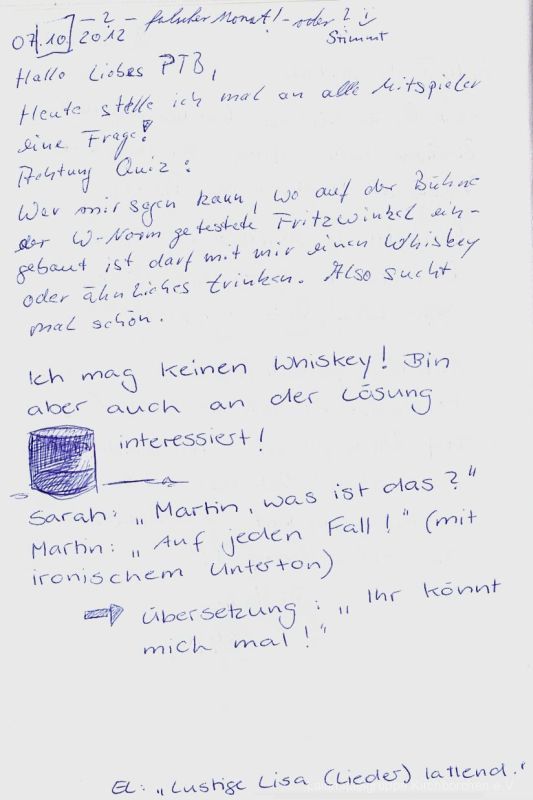 - 2 - falscher Monat! - oder? :)
07.10.2012 Stimmt
Hallo Liebes PTB,
Heute stelle ich mal an alle Mitspieler
eine Frage!
Achtung Quiz:
Wer mir sagen kann, wo auf der Bühne
der W-Norm getestete Fritzwinkel ein-
gebaut ist darf mit mir einen Whiskey
oder ähnliches trinken. Also sucht
mal schön.
Ich mag keinen Whiskey! Bin
aber auch an der Lösung
interessiert!
Sarah: „Martin, was ist das?“
Martin: „Auf jeden Fall!“ (mit
ironischem Unterton)
Übersetzung: „Ihr könnt
mich mal!“
EL: „Lustige Lisa (Lieder) lallend.“